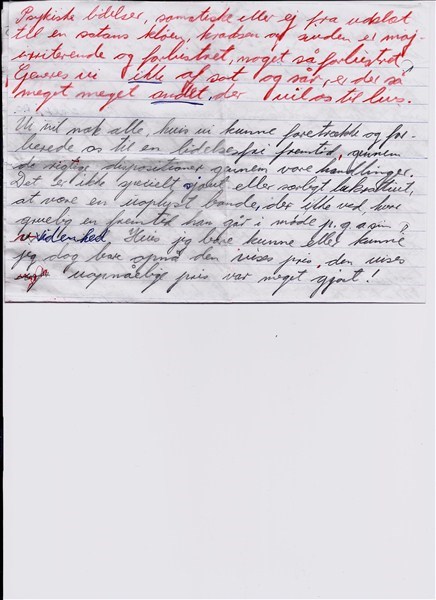 Psykiske lidelser, somatiske eller ej fra udslæt
til en satans kløen, kradsen og anden er maj-
oriterende og forbistret, noget så forbistret
Generes vi ikke af sot og sår, er der så
meget meget andet, der vil os til livs.
Vi vil nok alle, hvis vi kunne foretrække og for-
berede os til en lidelsesfri fremtid, gennem
de rigtige dispositioner gennem vore handlinger.
Det er ikke specielt sjovt eller særligt lukrativt,
at være en uoplyst bonde, der ikke ved, hvor
gruelig en fremtid han går i møde p.g.a sin
uvidenhed. Hvis jeg bare kunne eller kunne
jeg dog bare opnå den vises pris, den vises
uopnåelige pris var meget gjort!